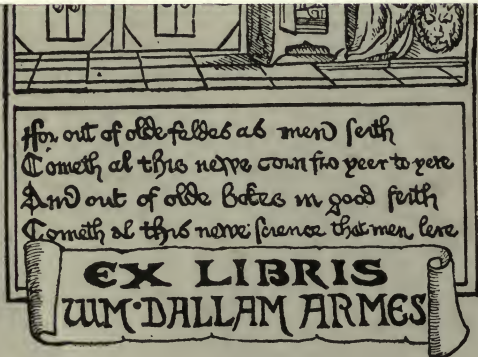 Ffor out of olde feldes as men seith
Cometh al this newe corn fro yeer to yere
And out of olde bokes in good feith
Cometh al this newe science that men lere
EX LIBRIS
WM·DALLAM ARMES